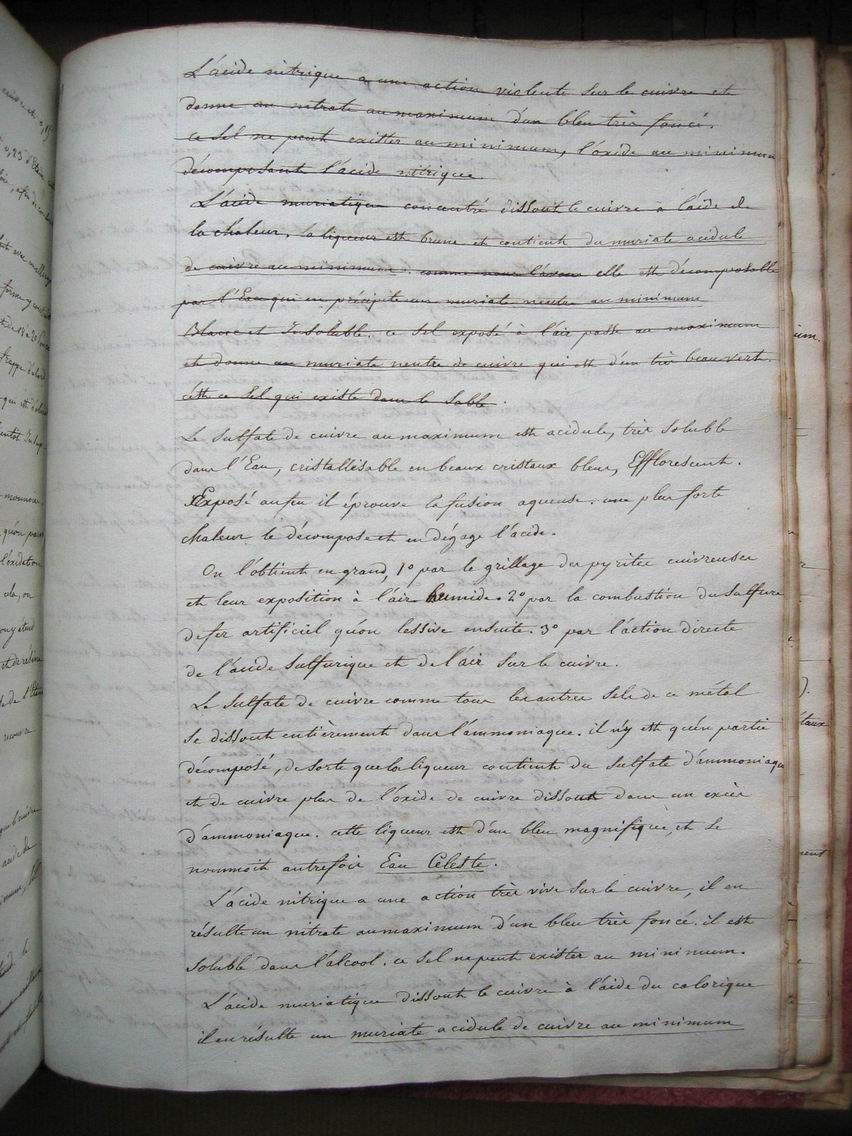 L'acide nitrique a une action violente sur le cuivre et
donne un nitrate au maximum d'un bleu très foncé.
ce sel ne peut exister au minimum, l'oxide au minimum
décomposant l'acide nitrique.
L'acide muriatique concentré dissout le cuivre à l'aide de
la chaleur. la liqueur est brune et contient du muriate acidule
de cuivre au minimum. comme nous l'avons elle est décomposable
par l'Eau qui en précipite un muriate neutre au minimum
Blanc et Insoluble. ce sel exposé à l'air passe au maximum
et donne un muriate neutre de cuivre qui est d'un très beau vert.
c'est ce sel qui existe dans le sable.
Le sulfate de cuivre au maximum est acidule, très soluble
dans l'Eau, cristallisable en beaux cristaux bleus, Efflorescent.
Exposé au feu il éprouve la fusion aqueuse. une plus forte
chaleur le décompose et en dégage l'acide.
On l'obtient en grand, 1º par le grillage des pyrites cuivreuses
et leur exposition à l'air humide. 2º par la combustion du sulfure
de fer artificiel qu'on lessive ensuite. 3º par l'action directe
de l'acide sulfurique et de l'air sur le cuivre.
Le sulfate de cuivre comme tous les autres sels de ce métal
se dissout entièrement dans l'ammoniaque. il n'y est qu'en partie
décomposé, de sorte que la liqueur contient du sulfate d'ammoniaque
et de cuivre plus de l'oxide de cuivre dissout dans un excès
d'ammoniaque. cette liqueur est d'un bleu magnifique, et se
nommoit autrefois Eau Celeste.
L'acide nitrique a une action très vive sur le cuivre, il en
résulte un nitrate au maximum d'un bleu très foncé. il est
soluble dans l'alcool. ce sel ne peut exister au minimum.
L'acide muriatique dissout le cuivre à l'aide du calorique
il en résulte un muriate acidule de cuivre au minimum